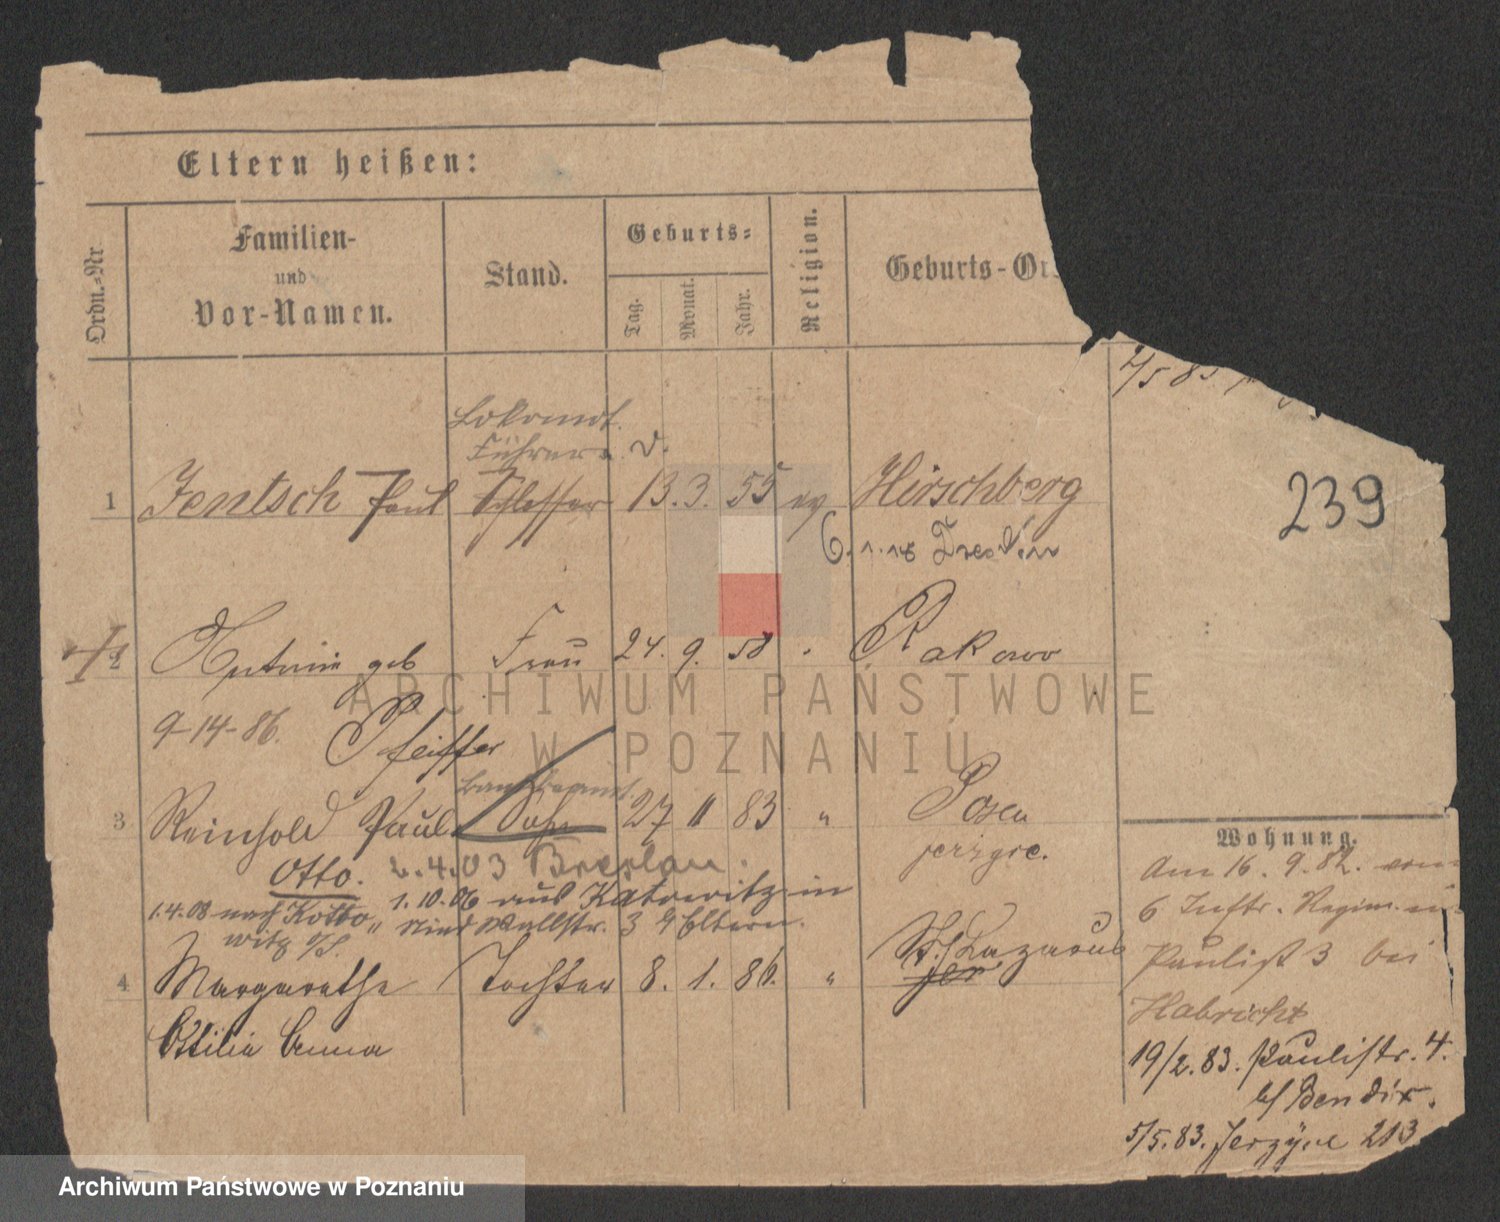 Eltern heißen:
Ordn.-Nr.
Familien-
und
Vor-Namen.
Stand.
Geburts-
Tag.
Monat.
Jahr.
Religion.
Geburts-Or
4/5 83
Lokomot.
Führer a. D.
1 Jentsch Paul Schlosser 13. 3. 55 ev Hirschberg
239
6. 1. 18 Dresden
2 Antonie geb Frau 24. 9. 58 Rakowo
9-14-86. Pfeiffer
3 Reinhold Paul Sohn 27 11 83 " Posen
Otto. 2.4.03 Breslau.
jerzyce.
1.10.06 aus Kattowitz in
1.4.08 nach Kotto " Wallstr. 3 Eltern.
witz o/S.
St. Lazarus
4 Margarethe Tochter 8. 1. 86. " jer
Ottilie Anna
Wohnung.
Am 16. 9. 82. vom
6 Inftr. Regim. in
Paulist 3 bei
Habricht
19/2. 83. Paulistr. 4.
b/ Bendix.
5/5. 83. Jerzyce 213
ARCHIWUM PAŃSTWOWE
W POZNANIU
Archiwum Państwowe w Poznaniu